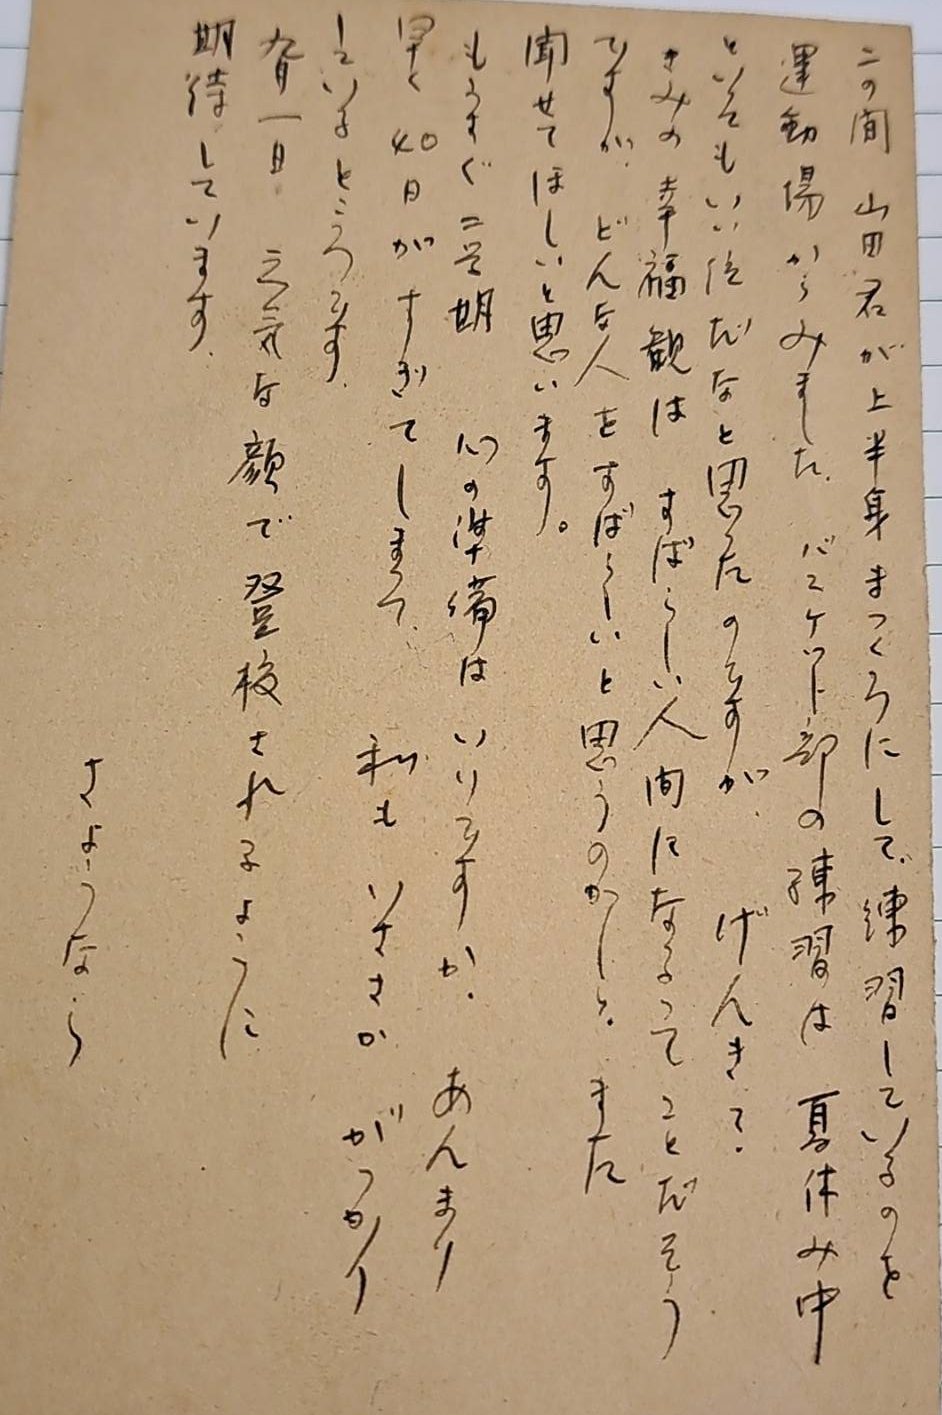 この間 山田君が上半身まっくろにして、練習しているのを
運動場からみました、バスケット部の練習は 夏休み中
といってもいい位だなと思ったのですが、 げんきで、
きみの幸福観は すばらしい人間になるってことだそう
ですが、どんな人をすばらしいと思うのかしら、また
聞せてほしいと思います。
もうすぐ二学期 心の準備はいいですか、 あんまり
早く 40日がすぎてしまって、 私もいささか がっかり
しているところです、
九月一日 元気な顔で登校されるように
期待しています、
さようなら